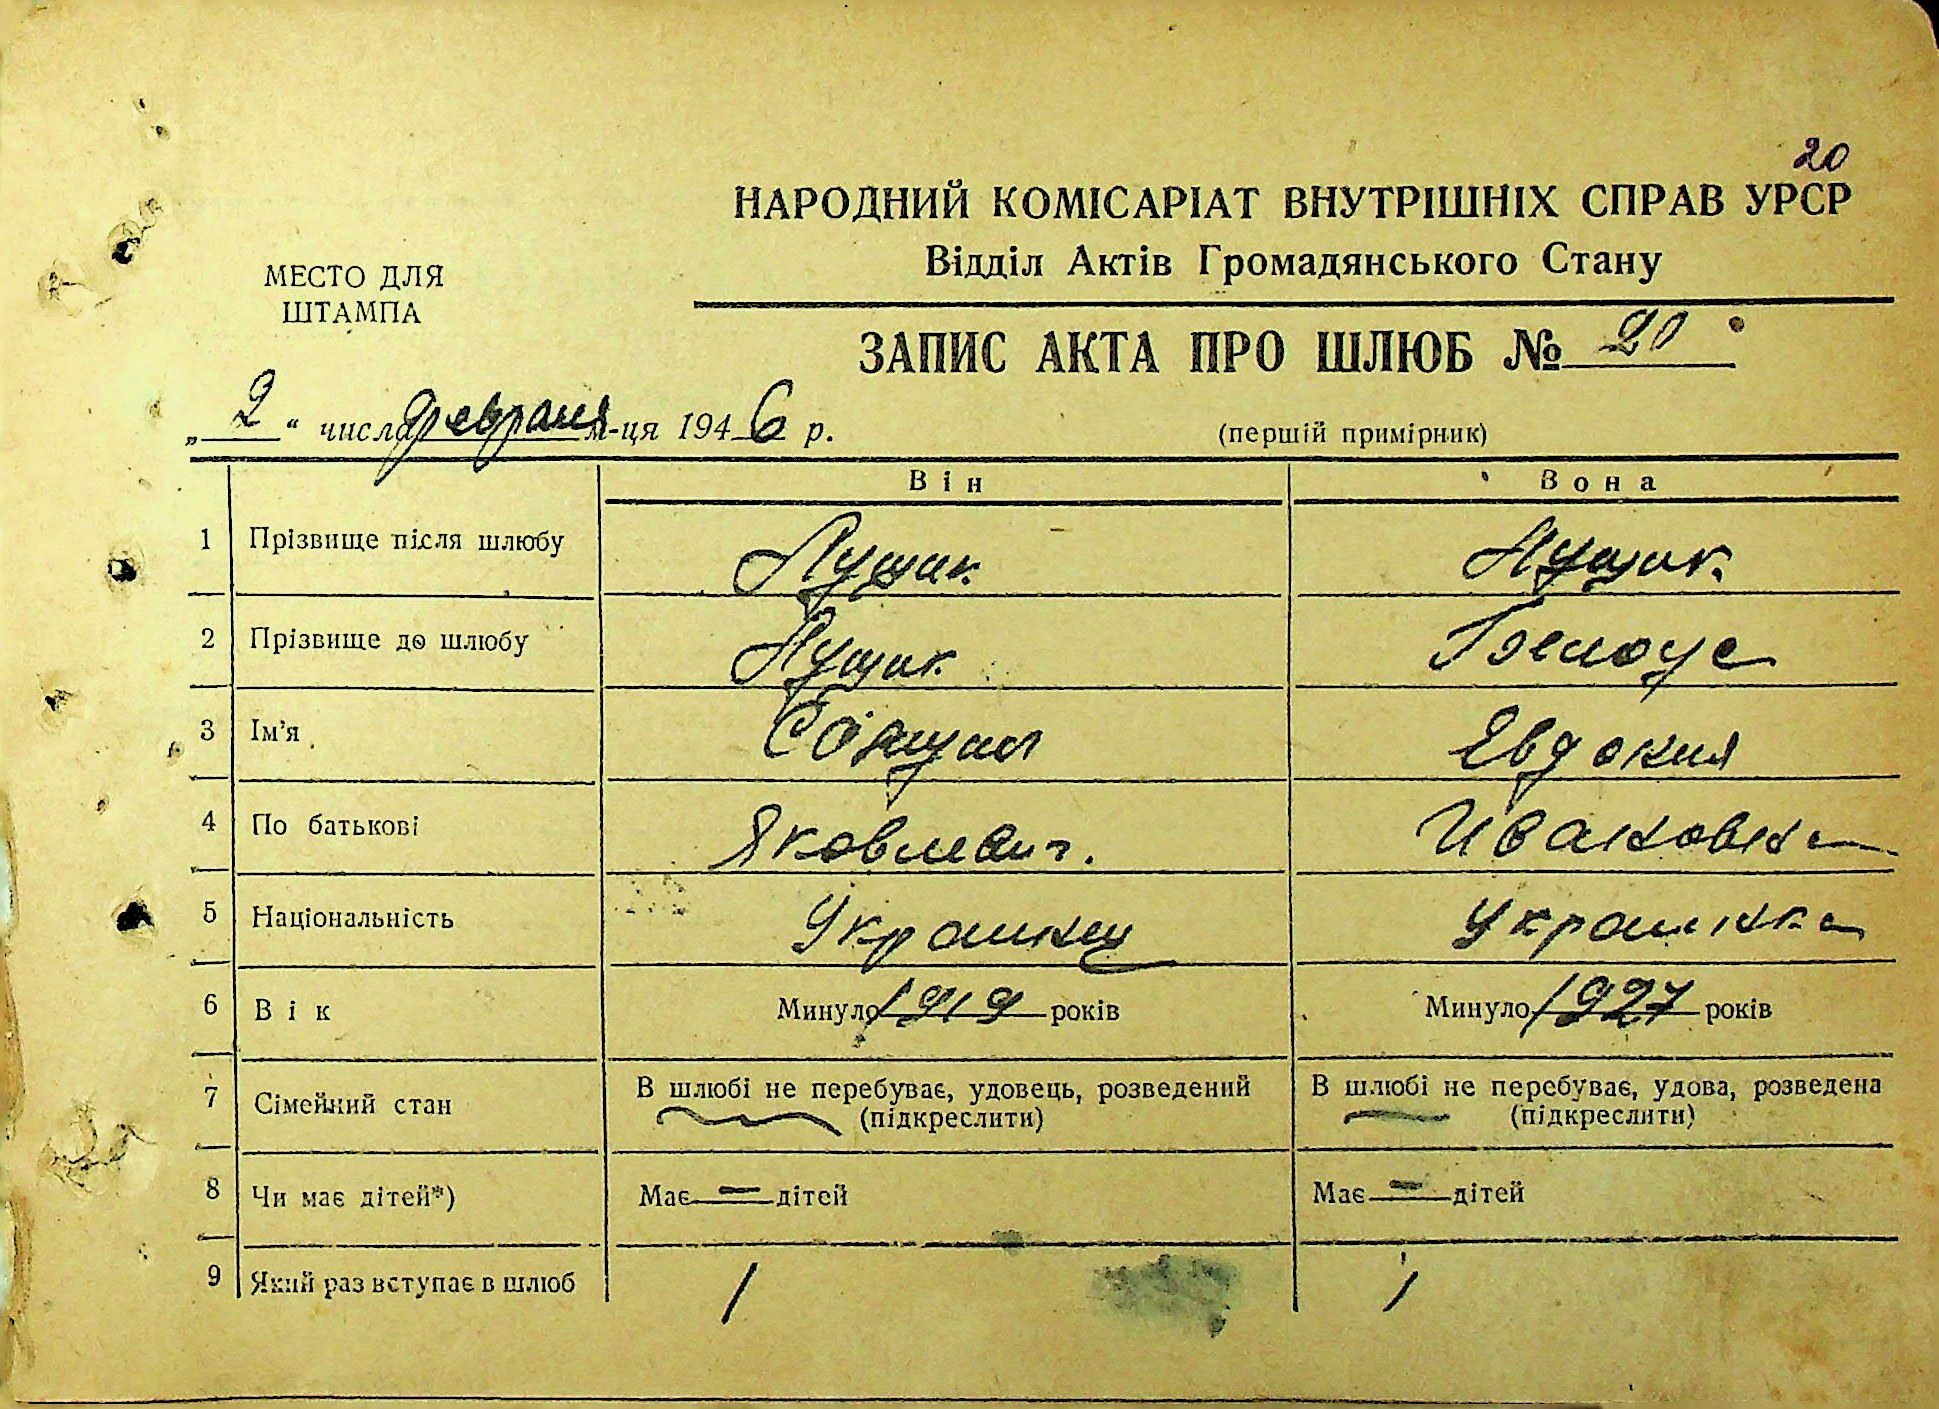 20
НАРОДНИЙ КОМІСАРІАТ ВНУТРІШНІХ СПРАВ УРСР
Відділ Актів Громадянського Стану
МЕСТО ДЛЯ
ШТАМПА
ЗАПИС АКТА ПРО ШЛЮБ № 20
„ 2 “ числа февраля м-ця 1946 р.
(перший примірник)
Він Вона
1 Прізвище після шлюбу Лущик Лущик
2 Прізвище до шлюбу Лущик Белоус
3 Ім'я Евдокия
4 По батькові Яковлевич. Ивановна
5 Національність Украинец Украинка
6 Вік Минуло 1919 років Минуло 1927 років
7 Сімейний стан В шлюбі не перебуває, удовець, розведений В шлюбі не перебуває, удова, розведена
(підкреслити) (підкреслити)
8 Чи має дітей*) Має — дітей Має — дітей
9 Який раз вступає в шлюб 1 1